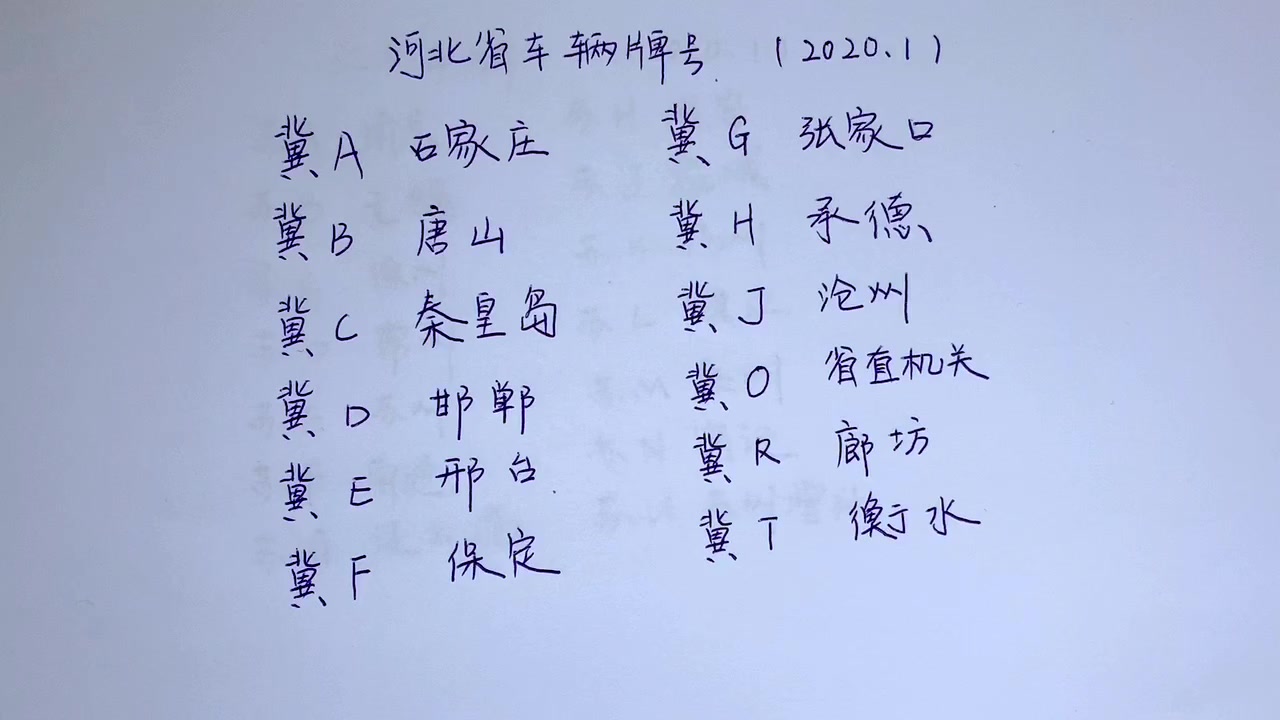 河北省车辆牌号 (2020.1)
冀A 石家庄
冀B 唐山
冀C 秦皇岛
冀D 邯郸
冀E 邢台
冀F 保定
冀G 张家口
冀H 承德
冀J 沧州
冀O 省直机关
冀R 廊坊
冀T 衡水